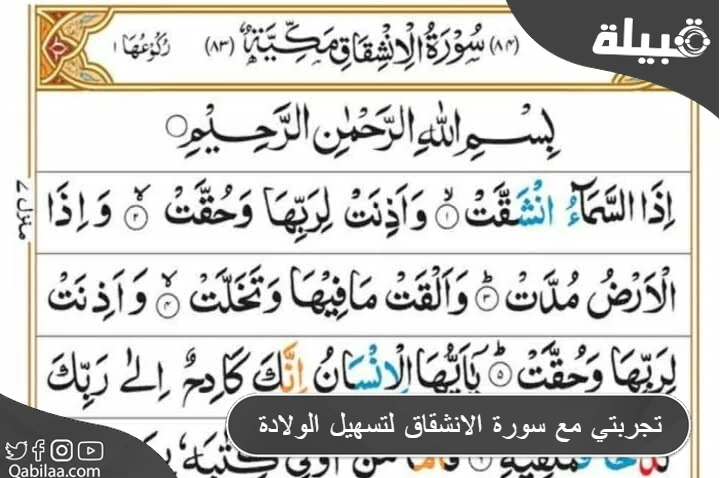 قبيلة
(٨٤) سُوْرَةُ الْاِنْشِقَاقِ مَكِّيَّةٌ (٨٣) رُكُوْعُهَا ١
بِسْمِ اللّٰهِ الرَّحْمٰنِ الرَّحِيْمِ
اِذَا السَّمَآءُ انْشَقَّتْ ۙ﴿۱﴾ وَاَذِنَتْ لِرَبِّهَا وَحُقَّتْ ۙ﴿۲﴾ وَاِذَا
الْاَرْضُ مُدَّتْ ؕ﴿۳﴾ وَاَلْقَتْ مَا فِيْهَا وَتَخَلَّتْ ۙ﴿۴﴾ وَاَذِنَتْ
لِرَبِّهَا وَحُقَّتْ ؕ﴿۵﴾ يٰۤاَيُّهَا الْاِنْسَانُ اِنَّكَ كَادِحٌ اِلٰى رَبِّكَ
منزل ٧
تجربتي مع سورة الانشقاق لتسهيل الولادة
Qabilaa.com